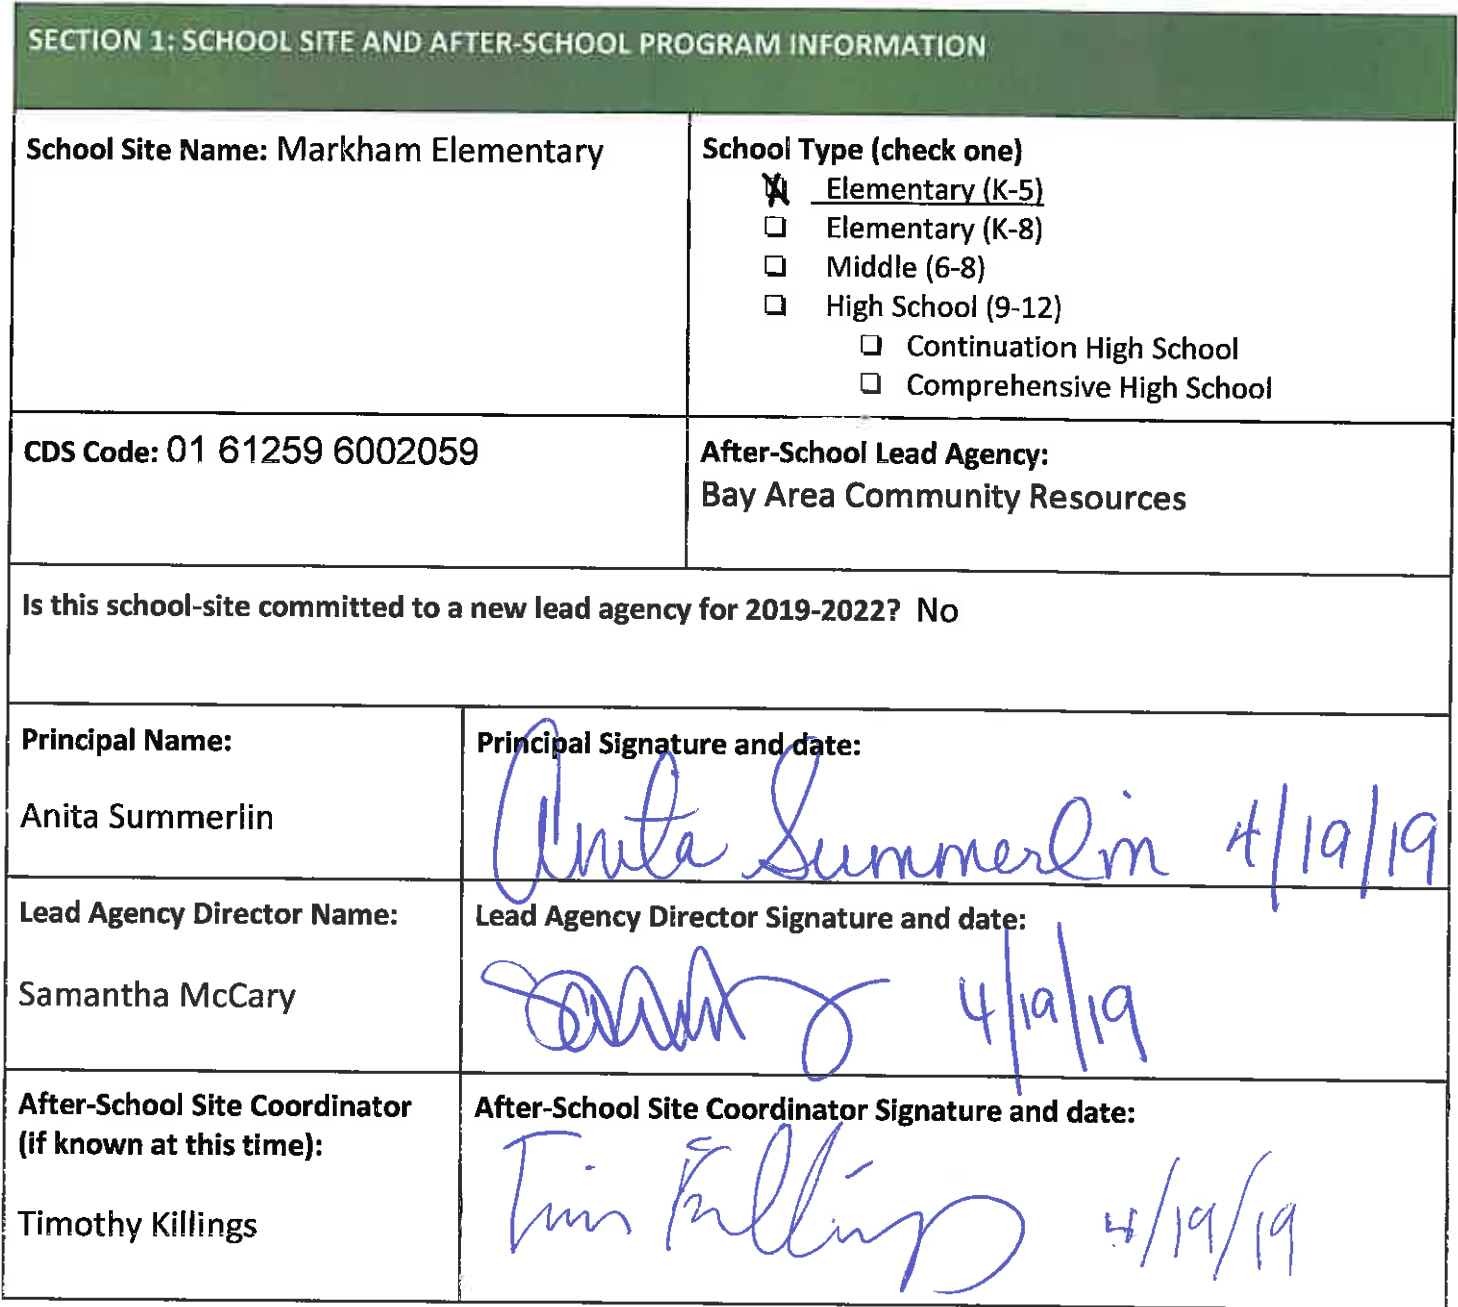 SECTION 1: SCHOOL SITE AND AFTER-SCHOOL PROGRAM INFORMATION
School Site Name: Markham Elementary
School Type (check one)
Elementary (K-5)
Elementary (K-8)
Middle (6-8)
High School (9-12)
Continuation High School
Comprehensive High School
CDS Code: 01 61259 6002059
After-School Lead Agency:
Bay Area Community Resources
Is this school-site committed to a new lead agency for 2019-2022? No
Principal Name:
Anita Summerlin
Principal Signature and date:
Anita Summerlin 4/19/19
Lead Agency Director Name:
Samantha McCary
Lead Agency Director Signature and date:
4/19/19
After-School Site Coordinator
(if known at this time):
Timothy Killings
After-School Site Coordinator Signature and date:
Tim Killings 4/19/19